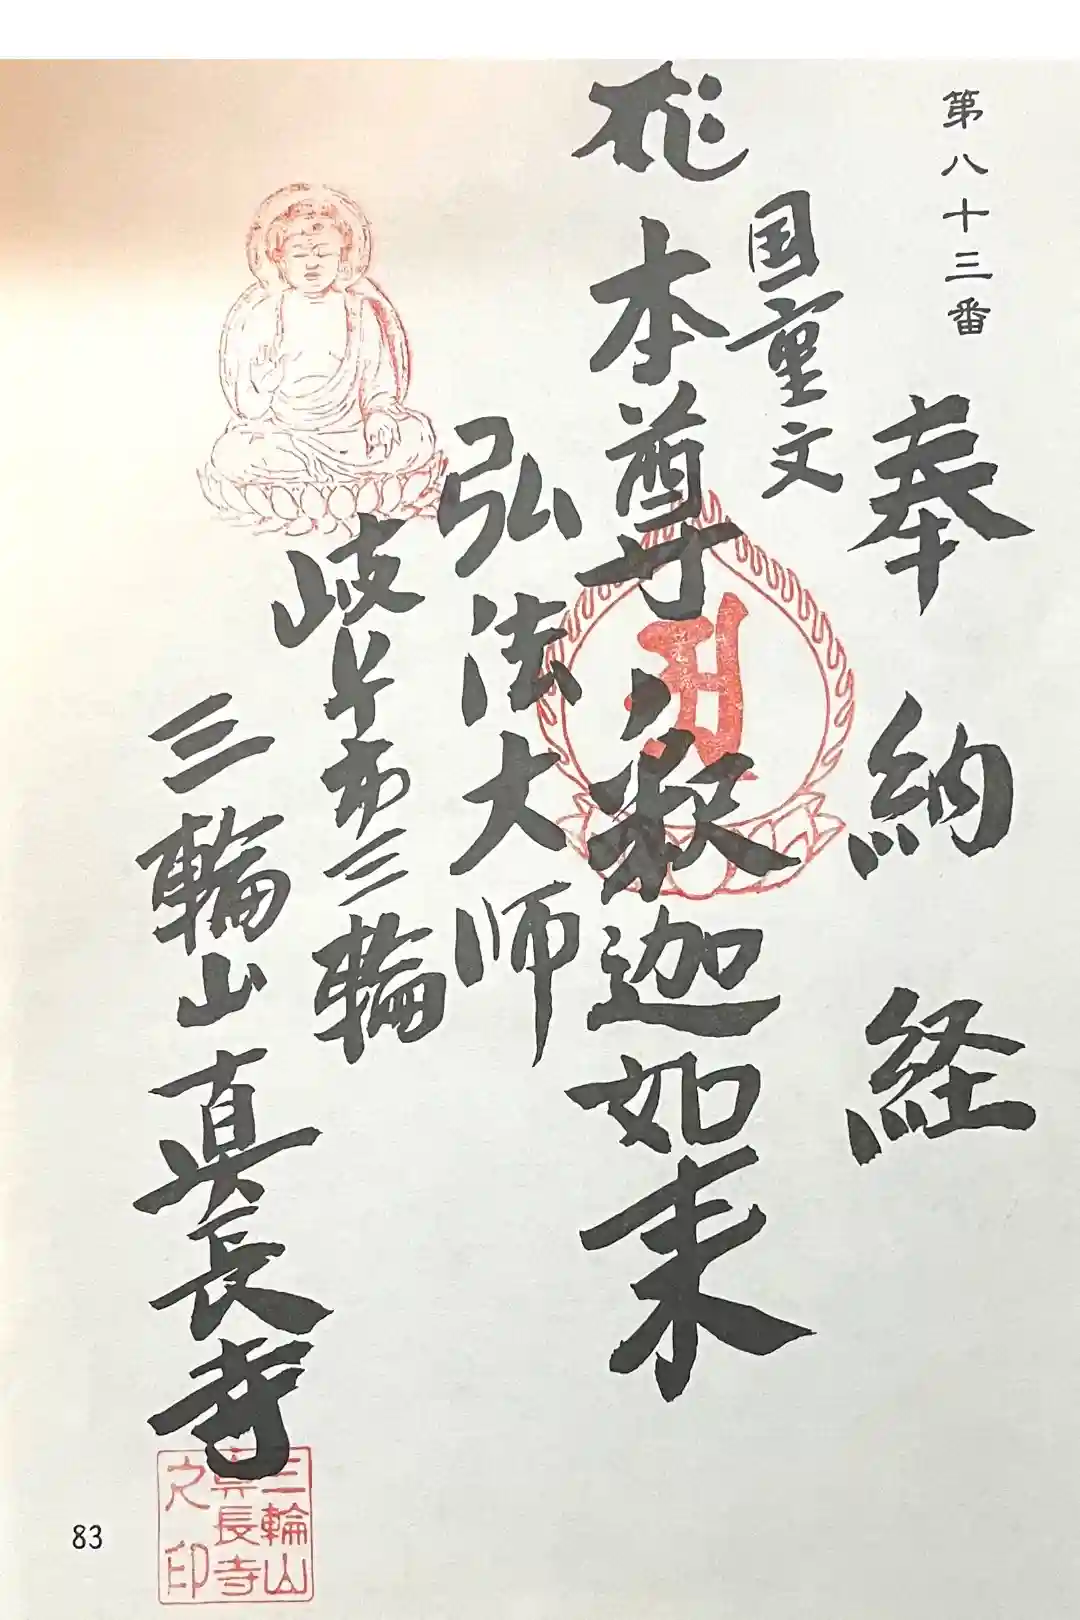 第八十三番
奉納経
国重文
本尊釈迦如来
弘法大师
岐阜市三輪
三輪山真長寺
三輪山
真長寺
之印
83